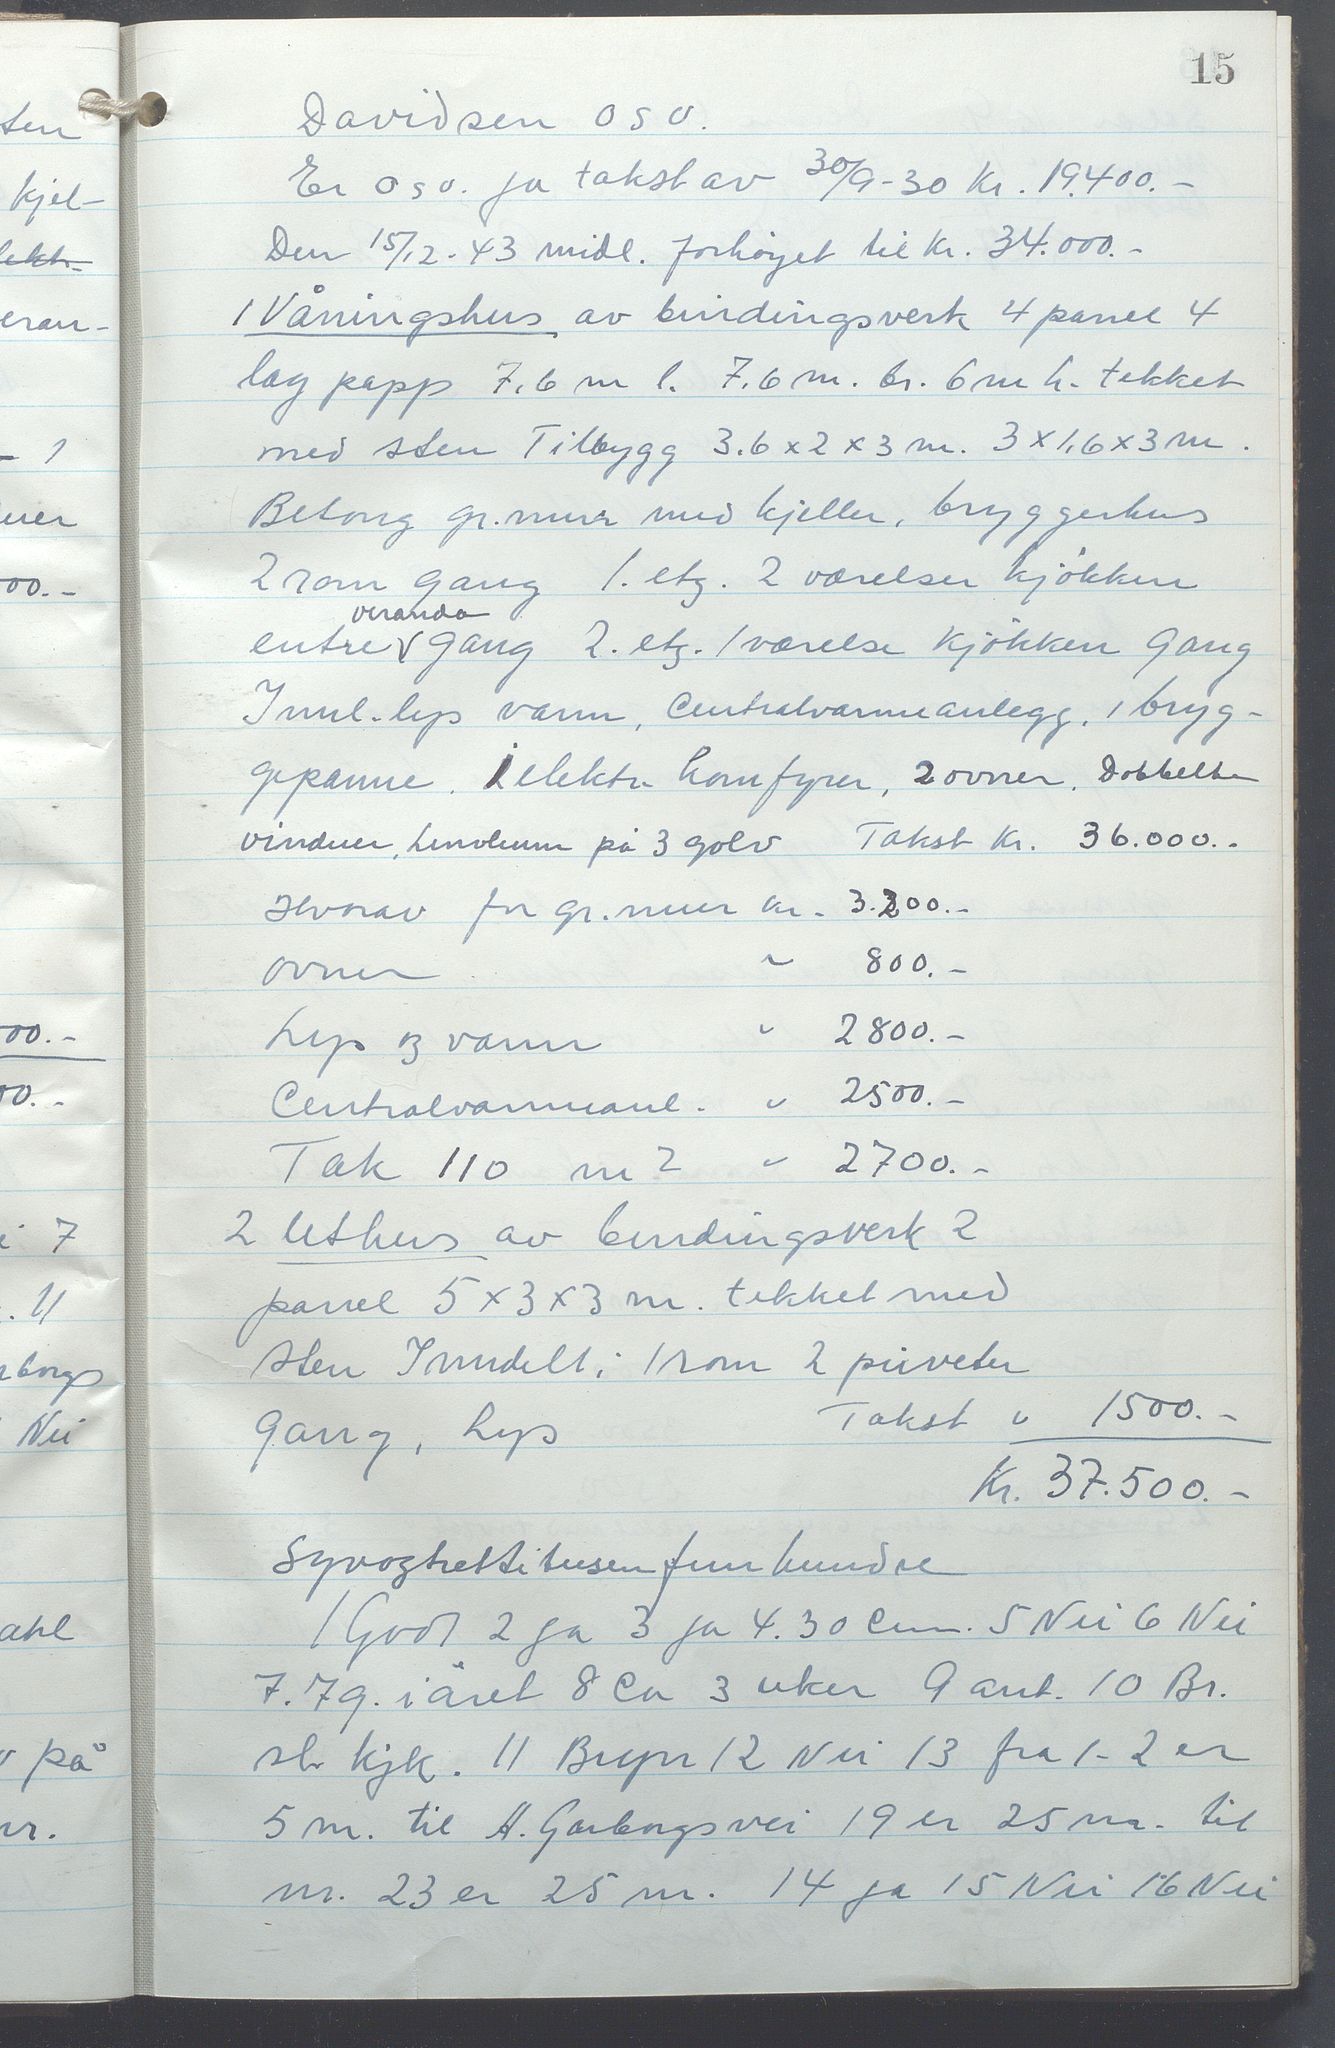 15
Davidsen o s v.
Er o s v. ja takst av 30/9-30 Kr. 19.400.-
Den 15/12-43 midl. forhøyet til Kr. 34.000.-
1 Våningshus av bindingsverk 4 panel 4
lag papp 7,6 m l. 7,6 m. br. 6 m h. tekket
med sten Tilbygg 3.6 x 2 x 3 m. 3 x 1,6 x 3 m.
Betong gr.mur med kjeller, bryggerhus
2 rom gang 1. etg. 2 værelser kjøkken
veranda
entre gang 2. etg. 1 værelse kjøkken gang
Innl. lys vann, Centralvarmeanlegg, 1 bryg-
gepanne. elektr. komfyrer, 2 ovner. Dobbelte
vinduer, Linoleum på 3 golv Takst Kr. 36.000.-
Hvorav for gr.muur kr. 3.200.-
ovner " 800.-
Lys og vann " 2800.-
Centralvarmeanl. " 2500.-
Tak 110 m2 " 2700.-
2 Uthus av bindingsverk 2
panel 5 x 3 x 3 m. tekket med
sten Inndelt i 1 rom 2 priveter
gang, Lys Takst " 1500.-
Kr. 37.500.-
Syvogtrettitusenfemhundre
1 Godt 2 ja 3 ja 4. 30 Cm. 5 Nei 6 Nei
7. 7 g. i året 8 Ca 3 uker 9 ant. 10 Br.
st. kjk. 11 Bryn 12 Nei 13 fra 1-2 er
5 m. til A. Garborgsvei 19 er 25 m. til
nr. 23 er 25 m. 14 ja 15 Nei 16 Nei